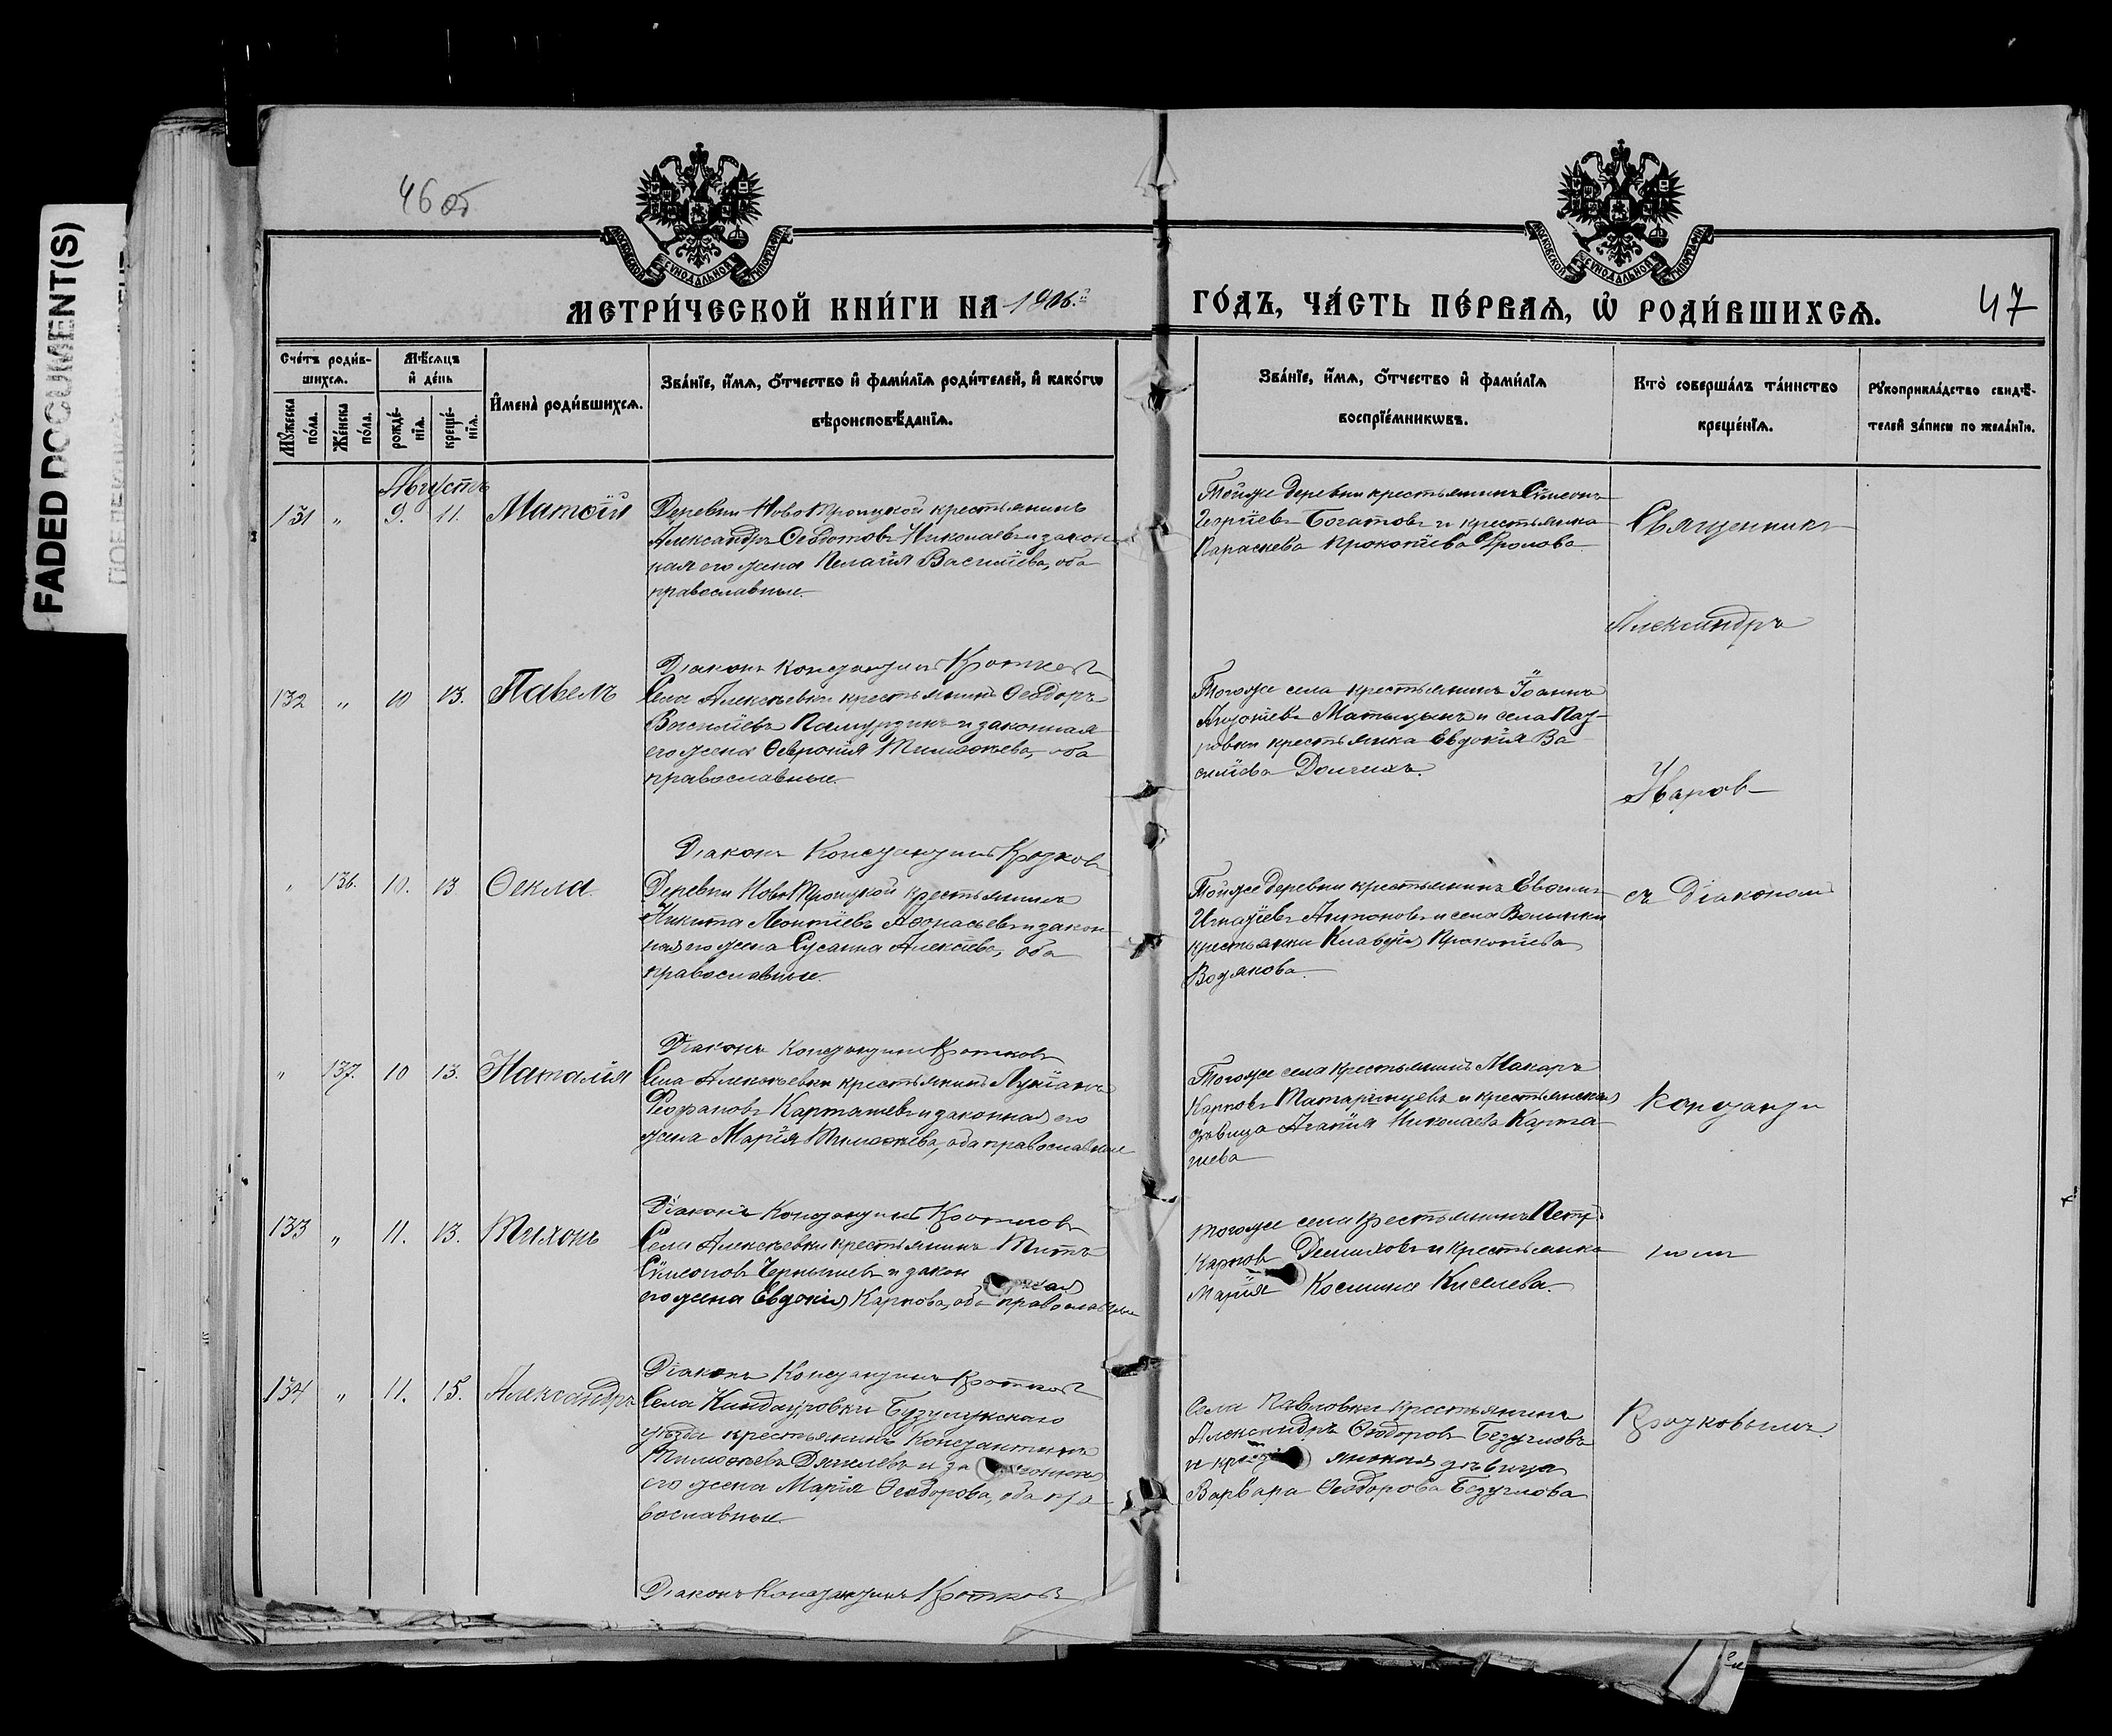 FADED DOCUMENT(S)
46 об
МОСКОВСКОЙ СѴНОДАЛЬНОЙ ТИПОГРАФІИ
МОСКОВСКОЙ СѴНОДАЛЬНОЙ ТИПОГРАФІИ
МЕТРИ́ЧЕСКОЙ КНИ́ГИ НА 1906.й ГО́ДЪ, ЧА́СТЬ ПЕ́РВАѦ, Ѡ҆ РОДИ́ВШИХСѦ.
47
Сче́тъ роди́в-
шихсѧ.
Мꙋ́жеска по́ла.
Же́нска по́ла.
Мѣ́сѧцъ
и҆ де́нь
рожде́-
нїѧ.
креще́-
нїѧ.
И҆мена̀ роди́вшихсѧ.
Зва́нїе, и҆́мѧ, ѻ҆́тчество и҆ фами́лїѧ роди́телей, и҆ како́гѡ
вѣроисповѣ́данїѧ.
Зва́нїе, и҆́мѧ, ѻ҆́тчество и҆ фами́лїѧ
воспрїе́мникѡвъ.
Кто̀ соверша́лъ та́инство
креще́нїѧ.
Рꙋкоприкла́дство свидѣ́-
телей за́писи по жела́нїю.
Августъ
131 " 9. 11. Матѳій
Деревни Ново Троицкой крестьянинъ
Александръ Ѳеодотовъ Николаевъ и закон
ная его жена Пелагія Василіева, оба
православные.
Тойже деревни крестьянинъ Сѵмеонъ
Георгіевъ Богатовъ и крестьянка
Параскева Прокопіева Фролова
Священникъ
Александръ
Діаконъ Константинъ Кротковъ
132 " 10 13. Павелъ
Села Алексѣевки крестьянинъ Ѳеодоръ
Василіевъ и законная
его жена Ѳеѵронія Тимоѳѣева, оба
православные.
Тогоже села крестьянинъ Іоаннъ
Матыцынъ и села
ровки крестьянка Евдокія Ва
силіева Долгихъ.
Уваровъ
Діаконъ Константинъ Кротковъ
" 136. 10. 13 Ѳекла
Деревни Ново Троицкой крестьянинъ
Никита Леонтіевъ Аѳонасьевъ и закон
ная его жена Сусанна Алексіева, оба
православные.
Тойже деревни крестьянинъ Евѳимъ
Игнатіевъ Антоновъ и села Волынки
крестьянки Клавдія Прокопіева
Водякова.
съ Діакономъ
Діаконъ Константинъ Кротковъ
" 137. 10 13. Наталія
Села Алексѣевки крестьянинъ Лукіанъ
Феофановъ Карташевъ и законная его
жена Марія Тимоѳѣева, оба православные
Тогоже села крестьянинъ Макаръ
Карповъ Татаринцевъ и крестьянская
дѣвица Агапія Николаева Карта
шева
Константи
Діаконъ Константинъ Кротковъ
133 " 11. 13. Тихонъ
Села Алексѣевки крестьянинъ Титъ
Сѵмеоновъ Чернышевъ и закон ная
его жена Евдокія Карпова, оба православные
Тогоже села крестьянинъ Петръ
Карповъ и крестьянка
Марія Космина Киселева.
номъ
Діаконъ Константинъ Кротковъ
134 " 11. 15. Александръ
Села Кандауровки Бузулукскаго
уѣзда крестьянинъ Константинъ
Тимоѳѣевъ и за конная
его жена Марія Ѳеодорова, оба пра
вославные.
Села Павловки крестьянинъ
Александръ Ѳеодоровъ Безугловъ
и крест янская дѣвица
Варвара Ѳеодорова Безуглова
Кротковымъ.
Діаконъ Константинъ Кротковъ